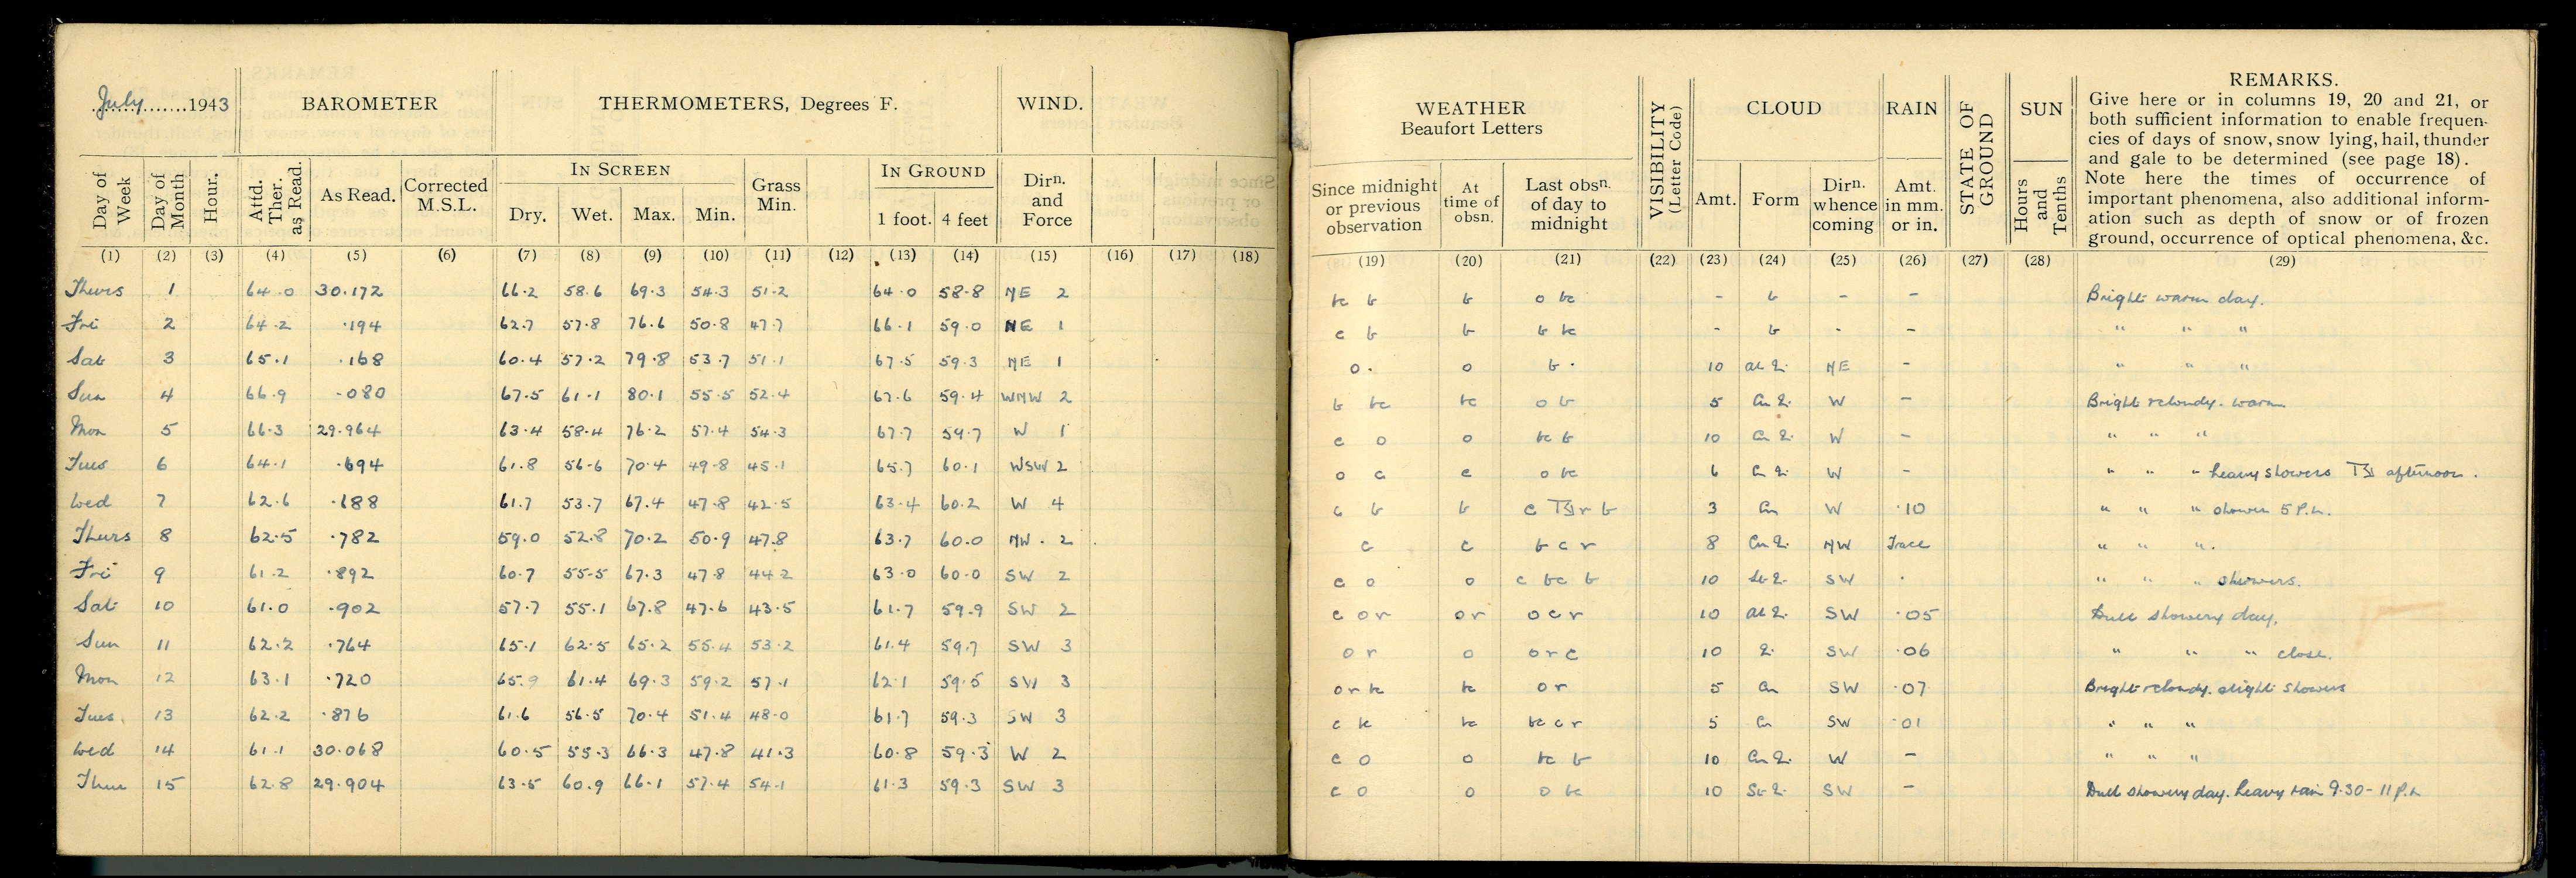 July 1943
BAROMETER THERMOMETERS, Degrees F. WIND.
IN SCREEN IN GROUND
Day of Week Day of Month Hour. Attd. Ther. as Read. As Read. Corrected M.S.L. Dry. Wet. Max. Min. Grass Min. 1 foot. 4 feet Dirn. and Force
(1) (2) (3) (4) (5) (6) (7) (8) (9) (10) (11) (12) (13) (14) (15) (16) (17) (18)
Thurs 1 64.0 30.172 66.2 58.6 69.3 54.3 51.2 64.0 58.8 NE 2
Fri 2 64.2 .194 62.7 57.8 76.6 50.8 47.7 66.1 59.0 NE 1
Sat 3 65.1 .168 60.4 57.2 79.8 53.7 51.1 67.5 59.3 NE 1
Sun 4 66.9 .080 67.5 61.1 80.1 55.5 52.4 67.6 59.4 WNW 2
Mon 5 66.3 29.964 63.4 58.4 76.2 57.4 54.3 67.7 59.7 W 1
Tues 6 64.1 .694 61.8 56.6 70.4 49.8 45.1 65.7 60.1 WSW 2
Wed 7 62.6 .188 61.7 53.7 67.4 47.8 42.5 63.4 60.2 W 4
Thurs 8 62.5 .782 59.0 52.8 70.2 50.9 47.8 63.7 60.0 NW. 2
Fri 9 61.2 .892 60.7 55.5 67.3 47.8 44.2 63.0 60.0 SW 2
Sat 10 61.0 .902 57.7 55.1 67.8 47.6 43.5 61.7 59.9 SW 2
Sun 11 62.2 .764 65.1 62.5 65.2 55.4 53.2 61.4 59.7 SW 3
Mon 12 63.1 .720 65.9 61.4 69.3 59.2 57.1 62.1 59.5 SW 3
Tues 13 62.2 .876 61.6 56.5 70.4 51.4 48.0 61.7 59.3 SW 3
Wed 14 61.1 30.068 60.5 55.3 66.3 47.8 41.3 60.8 59.3 W 2
Thur 15 62.8 29.904 63.5 60.9 66.1 57.4 54.1 61.3 59.3 SW 3
WEATHER Beaufort Letters VISIBILITY (Letter Code) CLOUD RAIN STATE OF GROUND SUN REMARKS.
Give here or in columns 19, 20 and 21, or
both sufficient information to enable frequen-
cies of days of snow, snow lying, hail, thunder
and gale to be determined (see page 18).
Note here the times of occurrence of
important phenomena, also additional inform-
ation such as depth of snow or of frozen
ground, occurrence of optical phenomena, &c.
Since midnight or previous observation At time of obsn. Last obsn. of day to midnight Amt. Form Dirn. whence coming Amt. in mm. or in. Hours and Tenths
(19) (20) (21) (22) (23) (24) (25) (26) (27) (28) (29)
bc b b o bc - b - - Bright warm day.
c b b b bc - b - - " " "
o. o b. 10 NE - " " "
b bc bc o b 5 W - Bright cloudy. warm
c o o bc b 10 W - " " "
o c c o bc 6 W - " " " heavy showers afternoon.
c b b c r b 3 Cu W .10 " " " shower 5 P.M.
c c b c r 8 NW Trace " " ".
c o o c bc b 10 SW . " " " showers.
c o r o r o c r 10 SW .05 Dull showery day.
o r o o r c 10 SW .06 " " " close.
o r bc bc o r 5 Cu SW .07 Bright cloudy. slight showers
c bc bc bc c r 5 Cu SW .01 " " "
c o o bc b 10 W - " " "
c o o o bc 10 SW - Dull showery day. heavy rain 9.30 - 11 p.m